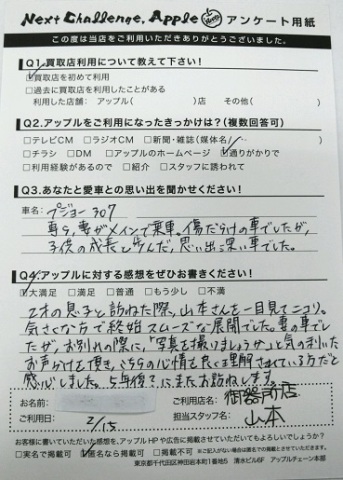 Next Challenge, Apple アンケート用紙
この度は当店をご利用いただきありがとうございました。
Q1.買取店利用について教えて下さい!
☑買取店を初めて利用
□過去に買取店を利用したことがある
利用した店舗: アップル( )店 その他( )
Q2.アップルをご利用になったきっかけは?(複数回答可)
□テレビCM □ラジオCM □新聞・雑誌(媒体名 )
□チラシ □DM □アップルのホームページ ☑通りがかりで
□利用経験があるので □紹介 □スタッフに誘われて
Q3.あなたと愛車との思い出を聞かせください!
車名: プジョー307
専ら、妻がメインで乗車。傷だらけの車でしたが、
子供の成長と歩んだ、思い出深い車でした。
Q4.アップルに対する感想をぜひお書きください!
☑大満足 □満足 □普通 □もう少し □不満
2才の息子と訪ねた際、山本さんを一目見てニコリ。
気さくな方で終始スムーズな展開でした。妻の車でし
たが、お別れの際に、「写真を撮りましょうか」と気の利いた
お声がけを頂き、こちらの心情を良く理解されている方だと
感心しました。5年後?にまたお訪ねします。
お名前:
ご利用店名: 御器所店
ご利用日: 2/15
担当スタッフ名: 山本
お客様に書いていただいた感想を、アップルHPや広告に掲載させていただいてもよろしいでしょうか?
□実名で掲載可 ☑匿名なら掲載可 □掲載不可 ※ご記入がない場合は匿名での掲載とさせていただきます。
東京都千代田区神田岩本町1番地5 清水ビル6F アップルチェーン本部